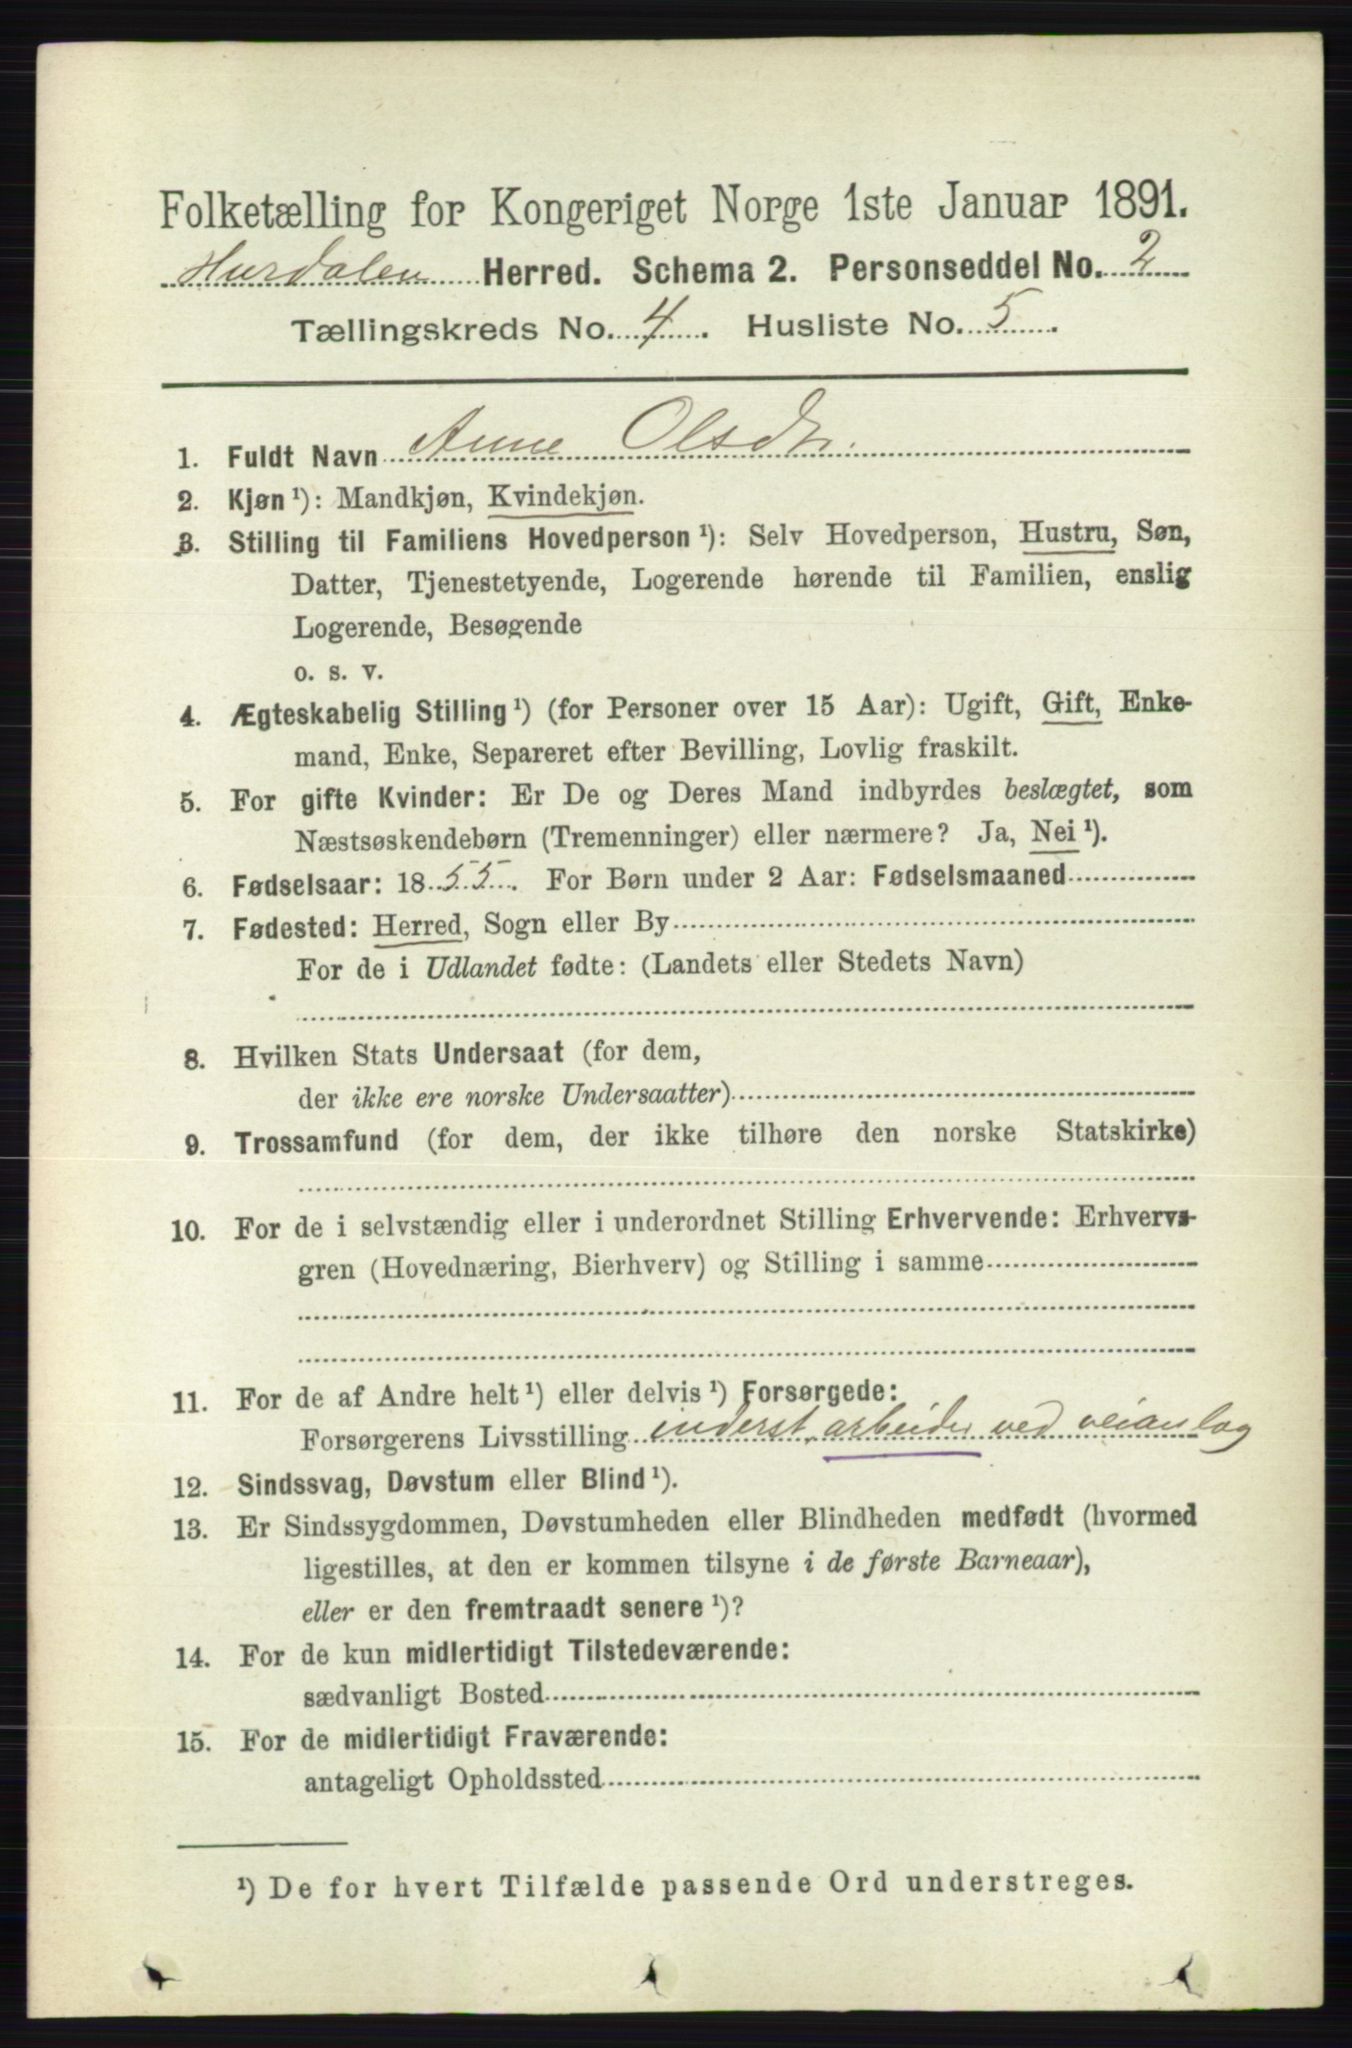 Folketælling for Kongeriget Norge 1ste Januar 1891.
Hurdalen Herred. Schema 2. Personseddel No. 2
Tællingskreds No. 4. Husliste No. 5.
1. Fuldt Navn Anne Olsdtr.
2. Kjøn¹): Mandkjøn, Kvindekjøn.
3. Stilling til Familiens Hovedperson¹): Selv Hovedperson, Hustru, Søn,
Datter, Tjenestetyende, Logerende hørende til Familien, enslig
Logerende, Besøgende
o. s. v.
4. Ægteskabelig Stilling¹) (for Personer over 15 Aar): Ugift, Gift, Enke-
mand, Enke, Separeret efter Bevilling, Lovlig fraskilt.
5. For gifte Kvinder: Er De og Deres Mand indbyrdes beslægtet, som
Næstsøskendebørn (Tremenninger) eller nærmere? Ja, Nei¹).
6. Fødselsaar: 1855. For Børn under 2 Aar: Fødselsmaaned
7. Fødested: Herred, Sogn eller By
For de i Udlandet fødte: (Landets eller Stedets Navn)
8. Hvilken Stats Undersaat (for dem,
der ikke ere norske Undersaatter)
9. Trossamfund (for dem, der ikke tilhøre den norske Statskirke)
10. For de i selvstændig eller i underordnet Stilling Erhvervende: Erhvervs-
gren (Hovednæring, Bierhverv) og Stilling i samme
11. For de af Andre helt¹) eller delvis¹) Forsørgede:
Forsørgerens Livsstilling inderst, arbeider ved veianlag
12. Sindssvag, Døvstum eller Blind¹).
13. Er Sindssygdommen, Døvstumheden eller Blindheden medfødt (hvormed
ligestilles, at den er kommen tilsyne i de første Barneaar),
eller er den fremtraadt senere¹)?
14. For de kun midlertidigt Tilstedeværende:
sædvanligt Bosted
15. For de midlertidigt Fraværende:
antageligt Opholdssted
¹) De for hvert Tilfælde passende Ord understreges.